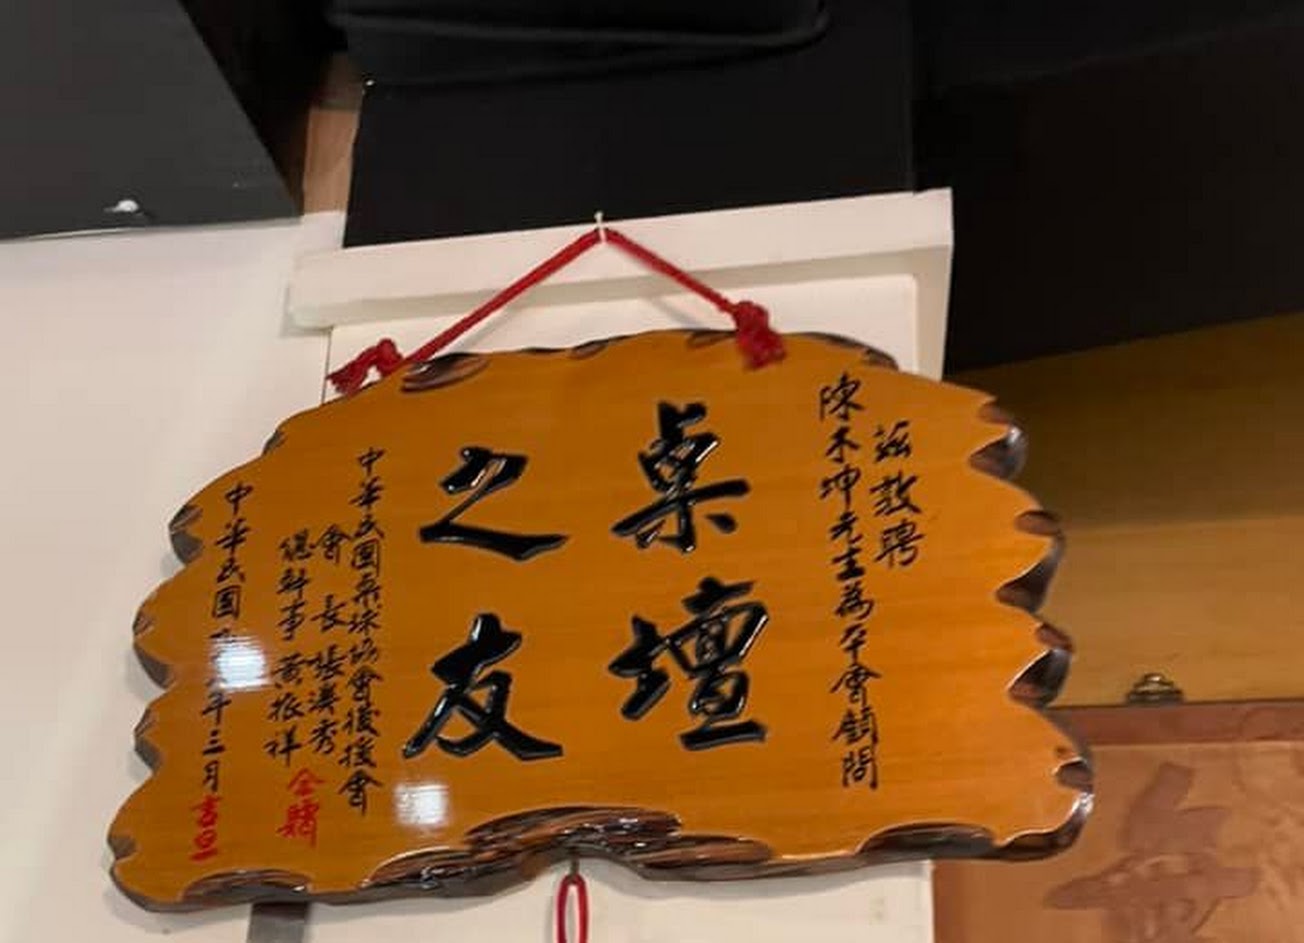 茲敬聘
陳木坤先生為本會顧問
桌壇
之友
中華民國桌球協會後援會
會長 張漢秀
總幹事 黃振祥 仝贈
中華民國 年三月吉旦